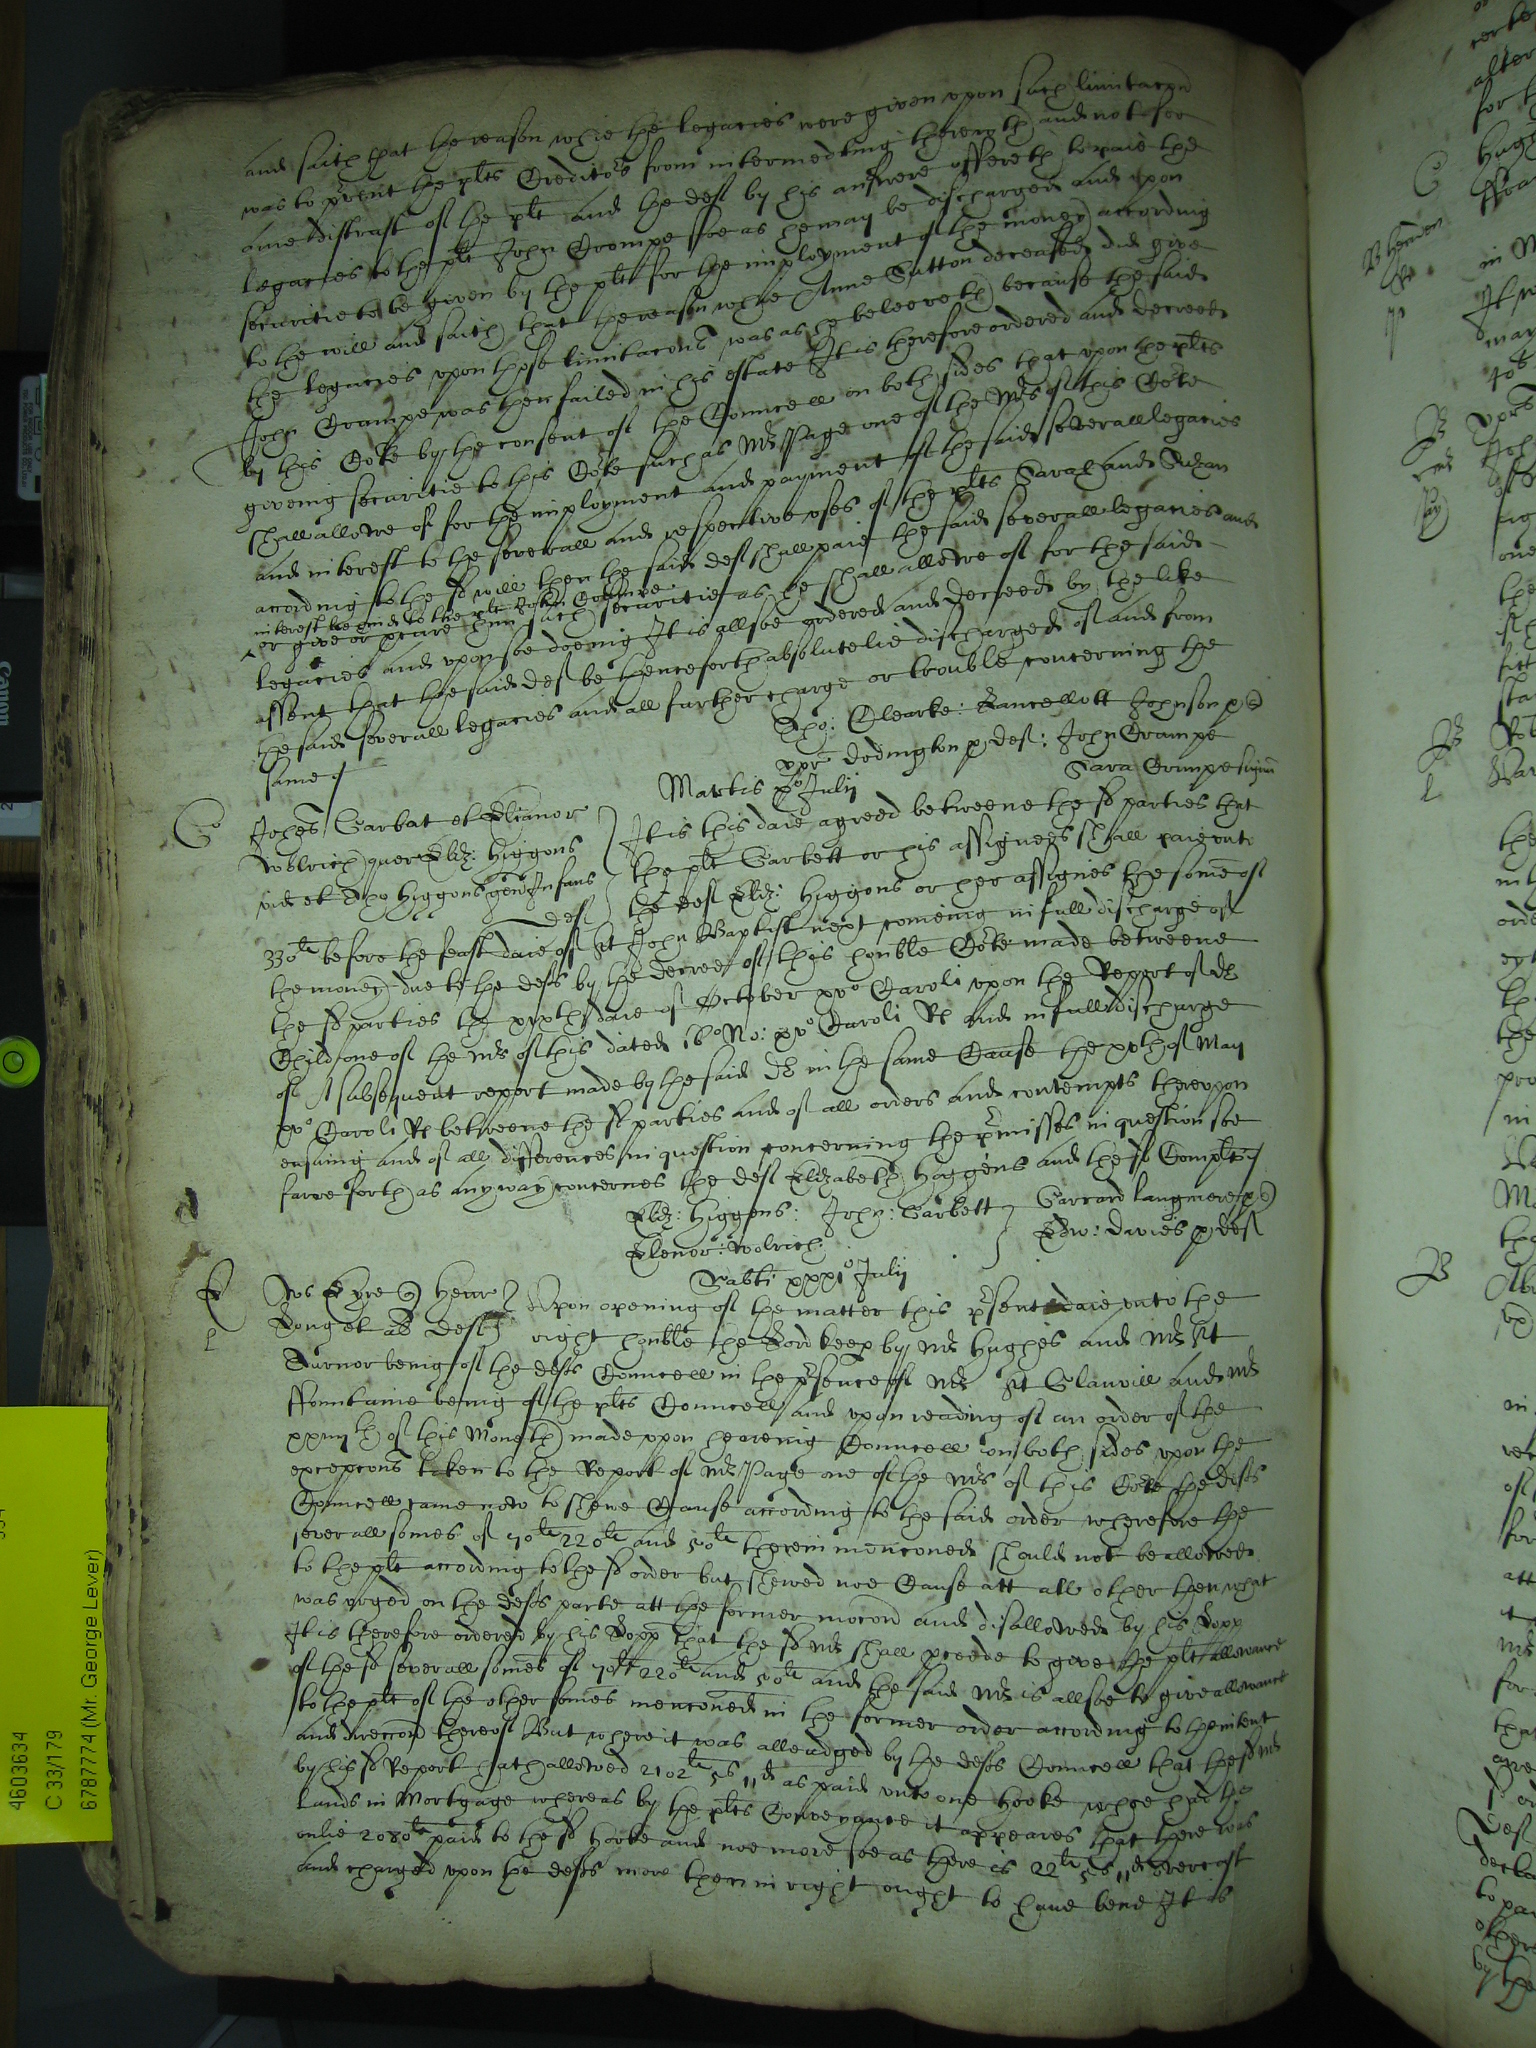 and saith that the reason whie the legacies were given upon such limitacon
was to prvent the plts Creditors from intermedling therewth and not for
anie distrust of the plt and the deft by his answere offereth to paie the
legacies to the plt John Crompe soe as he may be discharged and upon
securitie to be given by the plt for the imployment of the money according
to the will and saith that the reason whie Anne Sutton deceased did give
the legacies upon those limitacons was as he beleeveth because the said
John Crompe was then failed in his estate It is therefore ordered and decreed
by this Corte by the consent of the Councell on both sides that upon the plts
giveing securitie to this Corte such as Mr Page one of the Mrs of this Corte
shall allowe of for the imployment and payment of the said severall legacies
and interest to the severall and respective uses of the plts Sarah and Suzan
according to the sd will then the said deft shall paie the said severall legacies and
interest beehinde to the plt John Crompe
or give or pcure him such securitie as he shall allowe of for the said
legacies and upon soe doeing It is allsoe ordered and decreed by the like
assent that the said deft be thenceforth absolutelie discharged of and from
the said severall legacies and all further charge or trouble concerning the
same
Xpo: Clearke: Lancellott Johnson p q
Dodington p def: John Crompe
Sara Crompe
Martis Julij
Johes Garbat et Elianor
Wolrich quer Eliz: Higgons
vid et Xpo Higgons gen Infans
def
It is this daie agreed betweene the sd parties that
the plt Garbett or his assignees shall paie unto
the deft Eliz: Higgons or her assignes the some of
330li before the feast daie of St John Baptist next comeing in full discharge of
the money due to the defts by the decree of this honble Corte made betweene
the sd parties the xixth daie of October xvo Caroli upon the Report of Dr
Childe one of the Mrs of this dated 16o No: xvo Caroli Rs and in full discharge
of A subsequent report made by the said Dr in the same Cause the xvth of May
xvo Caroli Rs betweene the sd parties and of all orders and contempts thereupon
ensuing and of all differences in question concerning the prmisses in question soe
farre forth as any way concernes the deft Elizabeth Higgens and the sd Complts
Eliz: Higgens: John: Garbett
Elenor: Wolrich
Garrard Langmere p q
Edw: Davies p def
Sabti xxxio Julij
Eyre Henr
Long et al Defts
Upon opening of the matter this prsent daie unto the
right honble the Lord keep by Mr Hughes and Mr St
Turnor being of the defts Councell in the prsence of Mr St Glanvill and Mr
Fountaine being of the plts Councell and upon reading of an order of the
xxiiijth of this Moneth made upon heareing Councell on both sides upon the
excepcons taken to the Report of Mr Page one of the Mrs of this Corte the defts
Councell came now to shewe Cause according to the said order wherefore the
severall somes of 70li 220li and 50li therein menconed should not be allowed
to the plt according to the sd order but shewed noe Cause att all other then what
was urged on the defts parte att the former mocon and disallowed by his Lopp
It is therefore ordered by his Lopp that the sd Mr shall pceede to give the plt allowance
of the sd severall somes of 70li 220li and 50li and the said Mr is allsoe to give allowance
to the plt of the other somes menconed in the former order according to the intent
and direccon thereof But where it was alleadged by the defts Councell that the sd Mr
by his sd Report hath allowed 2102li 5s 11d as paid unto one Hooke whoe had the
lands in Mortgage whereas by the plts Conveyance it appeares that there was
onlie 2080li paid to the sd Hooke and noe more soe as there is 22li 5s 11d overcast
and charged upon the defts more then in right ought to have bene It is
4603634
C 33/179
6787774 (Mr. George Lever)